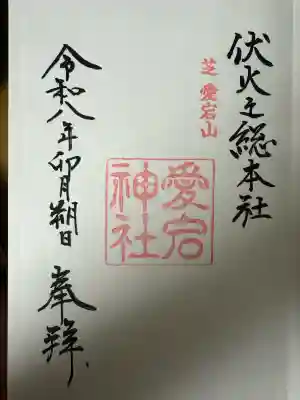 伏火之総本社
芝 愛宕山
愛宕
神社
令和八年卯月朔日 奉拝